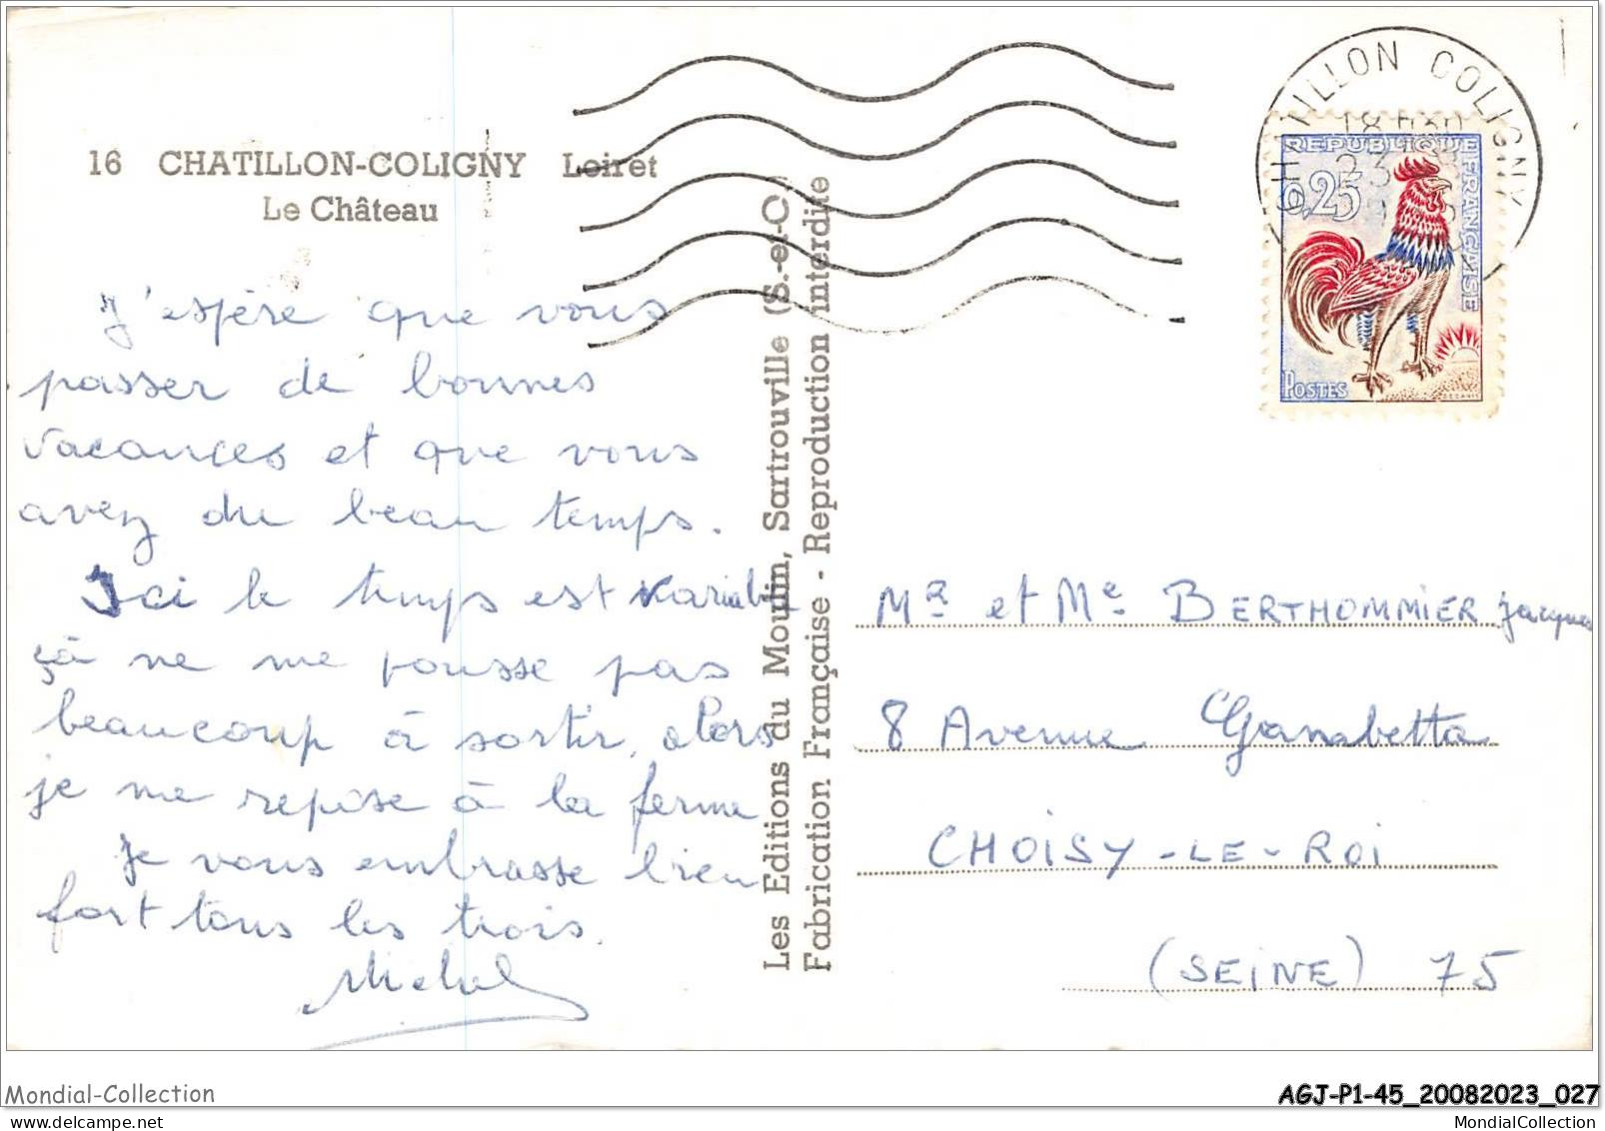 16 CHATILLON-COLIGNY Loiret
Le Château
J'espère que vous
passer de bonnes
vacances et que vous
avez du beau temps.
Ici le temps est variable
çà ne me pousse pas
beaucoup à sortir, alors
je me repose à la ferme
Je vous embrasse bien
fort tous les trois.
Michel
Les Editions du Moulin, Sartrouville (S.-et-O.)
Fabrication Française - Reproduction interdite
CHATILLON COLIGNY
18H30
23
REPUBLIQUE
FRANÇAISE
0,25
POSTES
DECARIS
Mr et Me BERTHOMMIER Jacques
8 Avenue Gambetta
CHOISY-LE-ROI
(SEINE) 75
Mondial-Collection
AGJ-P1-45_20082023_027
MondialCollection
MondialCollection